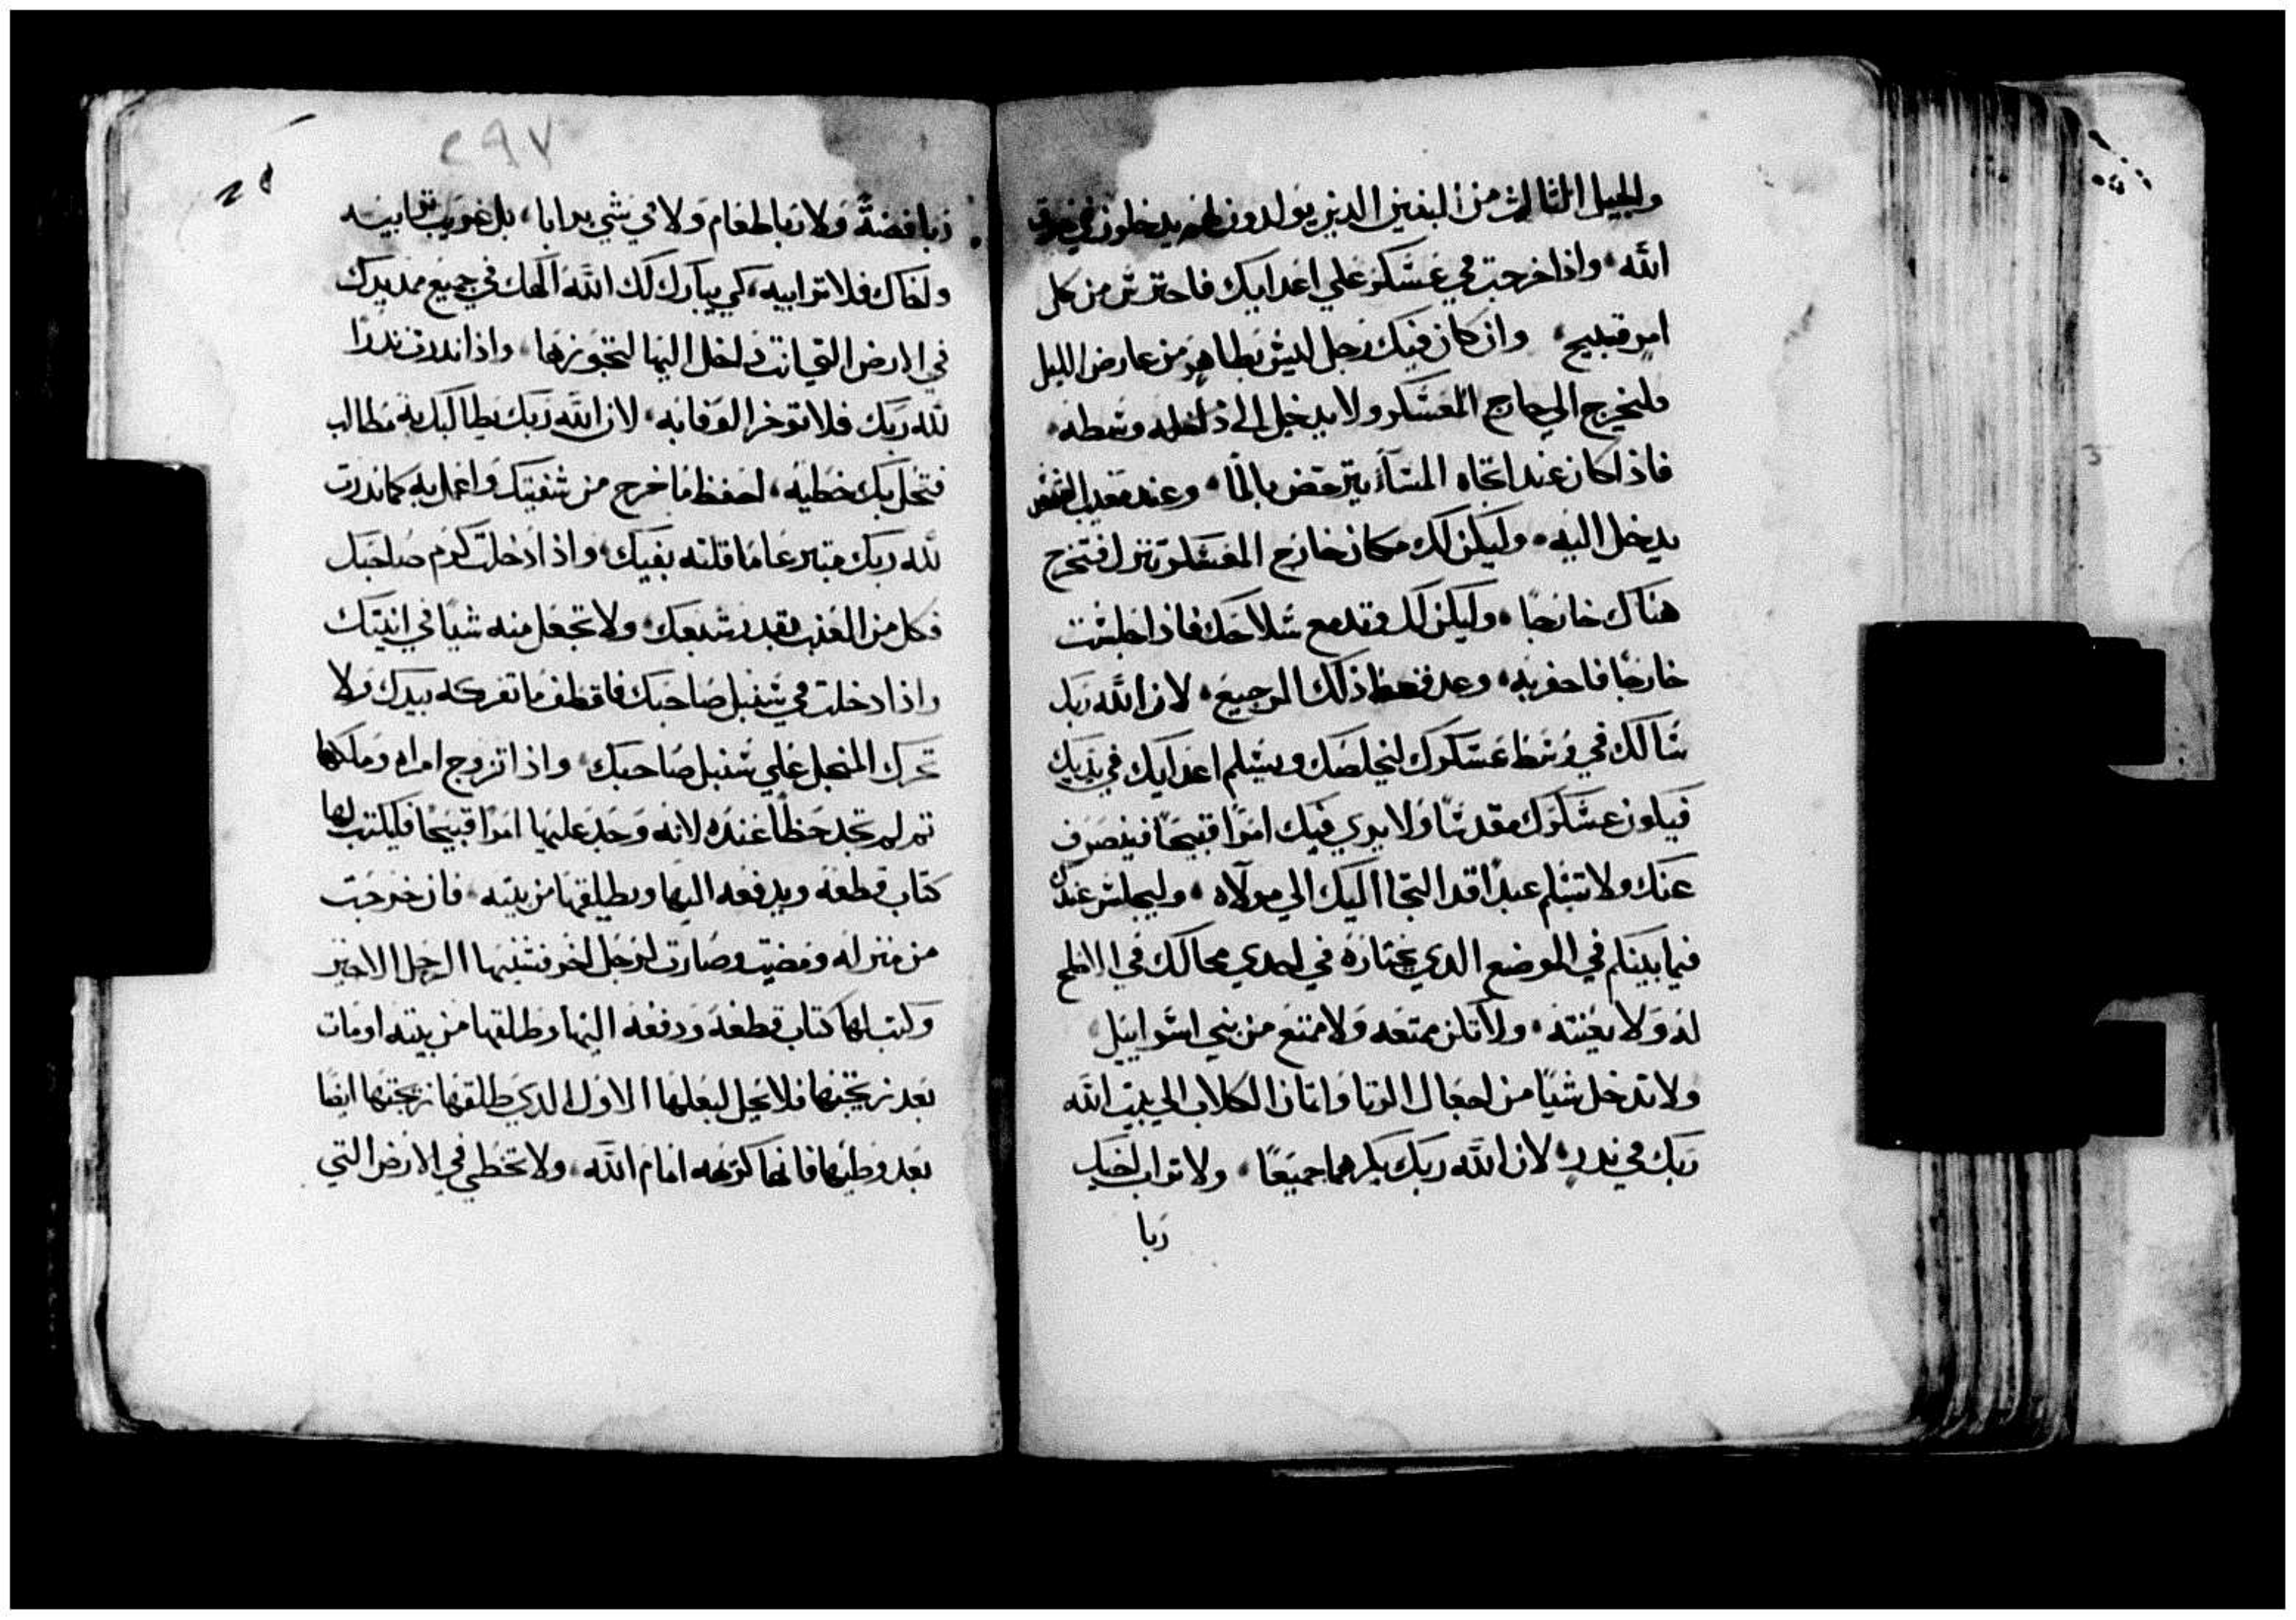 والجيل الثالث من البنين الدين يولدون لهم يدخلون في جوق
الله، واذا خرجت في عسكر علي اعدايك فاحترس من كل
امر قبيح، وان كان فيك رجل ليس بطاهر من عارض الليل
فليخرج الي خارج المعسكر ولا يدخل الى داخله وسطه،
فاذا كان عند اتجاه المسآء يترحض بالمآ، وعند مغيب الشمس
يدخل اليه، وليكن لك مكان خارج المعسكر تنزل فتخرج
هناك خارجًا، وليكن لك وتد مع سلاحك فاذا جلست
خارجًا فاحفر به، وعد فغط ذلك الرجيع، لان الله ربك
سالك في وسط عسكرك ليخلصك ويسلم اعدايك في يديك
فيكون عسكرك مقدسًا ولا يري فيك امرًا قبيحًا فينصرف
عنك ولا تسلم عبدًا قد التجا اليك الي مولاه، وليجلس عندك
فيما بينكم في الموضع الدي يختاره في احدي محالك في الاصلح
له ولا تعنته، ولا تكن ممتعه ولا ممتع من بني اسراييل
ولا تدخل شيًا من اجعال الزنا واتمان الكلاب الي بيت الله
ربك في ندر، لان الله ربك يكرهما جميعًا، ولا تراب اخيك
ربا
٢٩٧
ربا فضة ولا ربا طعام ولا في شي يرابا، بل غريب ترابيه
واخاك فلا ترابيه، كي يبارك لك الله الهك في جميع مد يدك
في الارض التي انت داخل اليها لتحوزها، واذا ندرت ندرًا
لله ربك فلا توخر الوفا به، لان الله ربك يطالبك به مطالب
فتحل بك خطية، احفظ ما خرج من شفتيك واعمل به كما ندرت
لله ربك متبرعًا ما قلته بفيك، واذا دخلت كرم صاحبك
فكل من العنب بقدر شبعك، ولا تجعل منه شيًا في انيتك
واذا دخلت في سنبل صاحبك فاقطف ما تفركه بيدك ولا
تحرك المنجل علي سنبل صاحبك، واذا تزوج امراه وملكها
تم لم تجد حظًا عنده لانه وجد عليها امرًا قبيحًا فليكتب لها
كتاب قطعة ويدفعه اليها ويطلقها من بيته، فان خرجت
من منزله ومضيت وصارت لرجل اخر فشنيها الرجل الاخير
وكتب لها كتاب قطعة ودفعه اليها وطلقها من بيته او مات
بعد تزيجتها فلا يحل لبعلها الاول الدي طلقها تزيجتها ايضًا
بعد وطيها فانها كرهه امام الله، ولا تخطي في الارض التي